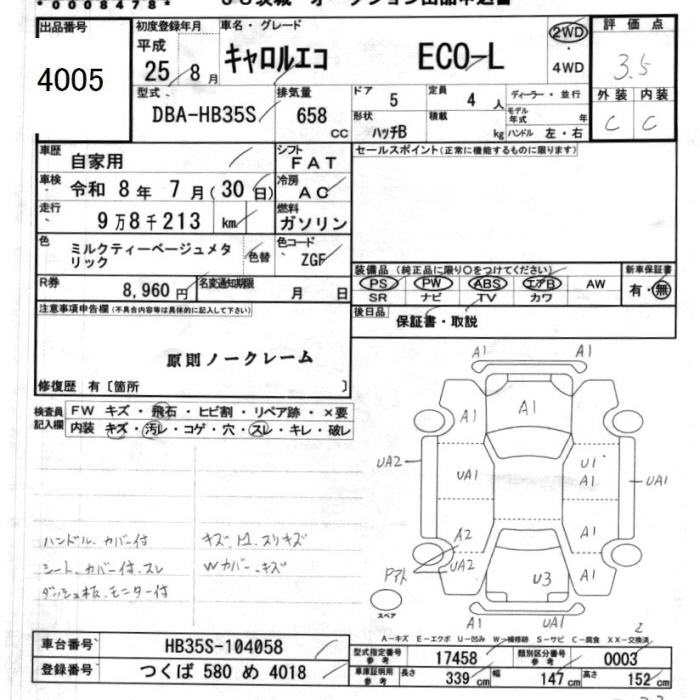 *0008478*
出品番号
4005
初度登録年月
平成
25年 8月
車名・グレード
キャロルエコ ECO-L
2WD
・
4WD
評価点
3.5
外装 内装
C C
型式
DBA-HB35S
排気量
658 CC
ドア 5
定員 4人
形状 ハッチB
積載 kg
ディーラー・並行
モデル年式 年
ハンドル 左・右
車歴 自家用
シフト FAT
車検 令和 8年 7月(30日)
冷房 AC
走行 9万8千213 km
燃料 ガソリン
色 ミルクティーベージュメタリック
色替
色コード ZGF
R券 8,960円
名変通知期限 月 日
セールスポイント(正常に機能するものに限ります)
装備品(純正品に限り○をつけてください)
PS PW ABS エアB AW
SR ナビ TV カワ
新車保証書
有・無
後日品 保証書・取説
注意事項申告欄(不具合内容等は具体的に記入して下さい)
原則ノークレーム
修復歴 有〔箇所 〕
検査員記入欄
FW キズ・飛石・ヒビ割・リペア跡・×要
内装 キズ・汚レ・コゲ・穴・スレ・キレ・破レ
ハンドル、カバー付
シート、カバー付、スレ
ダッシュ板、モニター付
Wカバー、キズ
A1 A1
A1 A1 A1
UA2 UA1 U1 A1 UA1
A2 A1
UA2 U3 A1
A1 UA1
スペア
A-キズ E-エクボ U-凹み W-補修跡 S-サビ C-腐食 XX-交換済
車台番号 HB35S-104058
登録番号 つくば 580 め 4018
型式指定番号 参考 17458
類別区分番号 参考 0003
車庫証明用 参考 長さ 339cm 幅 147cm 高さ 152cm